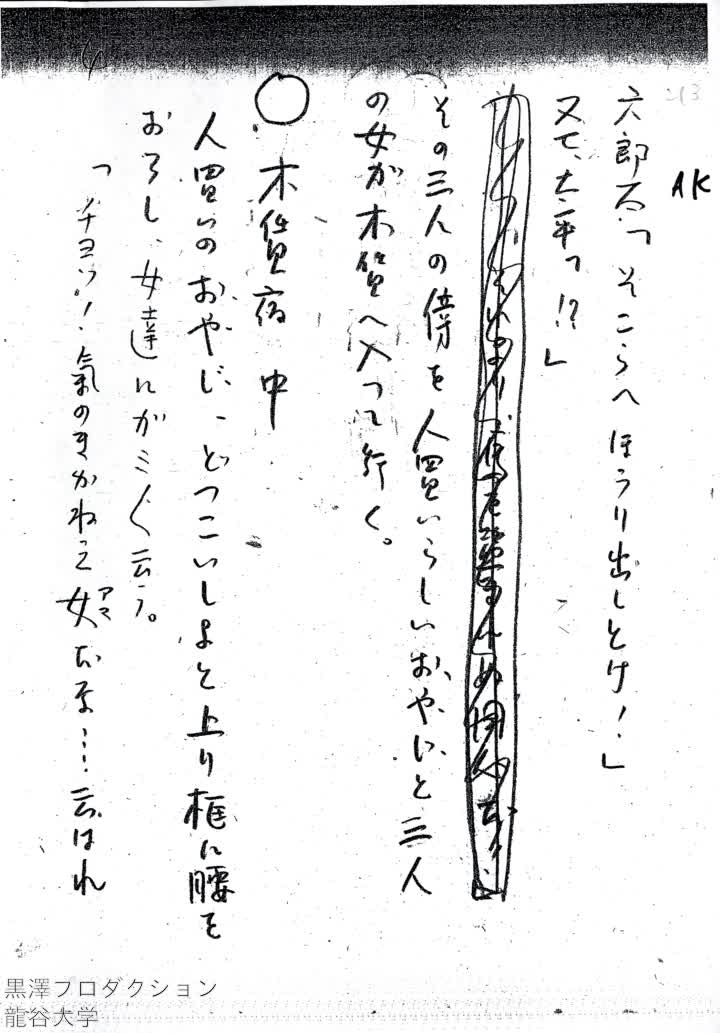 AK
213
六郎右「そこらへほうり出しとけ！」
又七、太平「!?」
その三人の傍を人買いらしいおやじと三人
の女が木賃へ入って行く。
○木賃宿 中
人買いのおやじ、どっこいしよと上り框に腰を
おろし、女達にがミ〱云う。
「チヨッ！氣のきかねえ女アマだな…云はれ
黒澤プロダクション
龍谷大学